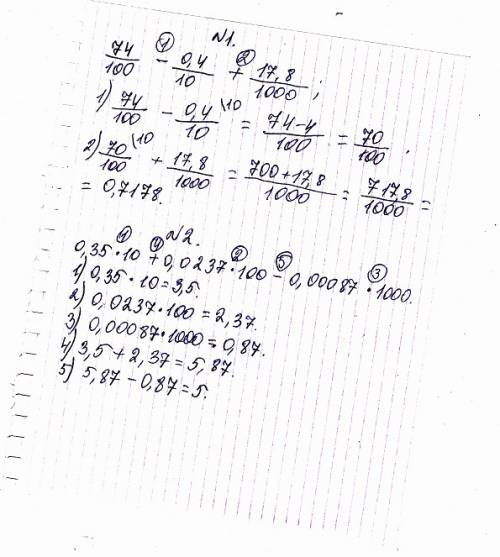 №1.
74/100 - ① 0,4/10 + ② 17,8/1000 ;
1) 74/100 - 0,4/10 \10 = 74-4/100 = 70/100 .
2) 70/100 \10 + 17,8/1000 = 700+17,8/1000 = 717,8/1000 =
= 0,7178.
№2.
0,35 ·① 10 +④ 0,0237 ·② 100 -⑤ 0,00087 ·③ 1000.
1) 0,35 · 10 = 3,5.
2) 0,0237 · 100 = 2,37.
3) 0,00087 · 1000 = 0,87.
4) 3,5 + 2,37 = 5,87.
5) 5,87 - 0,87 = 5.